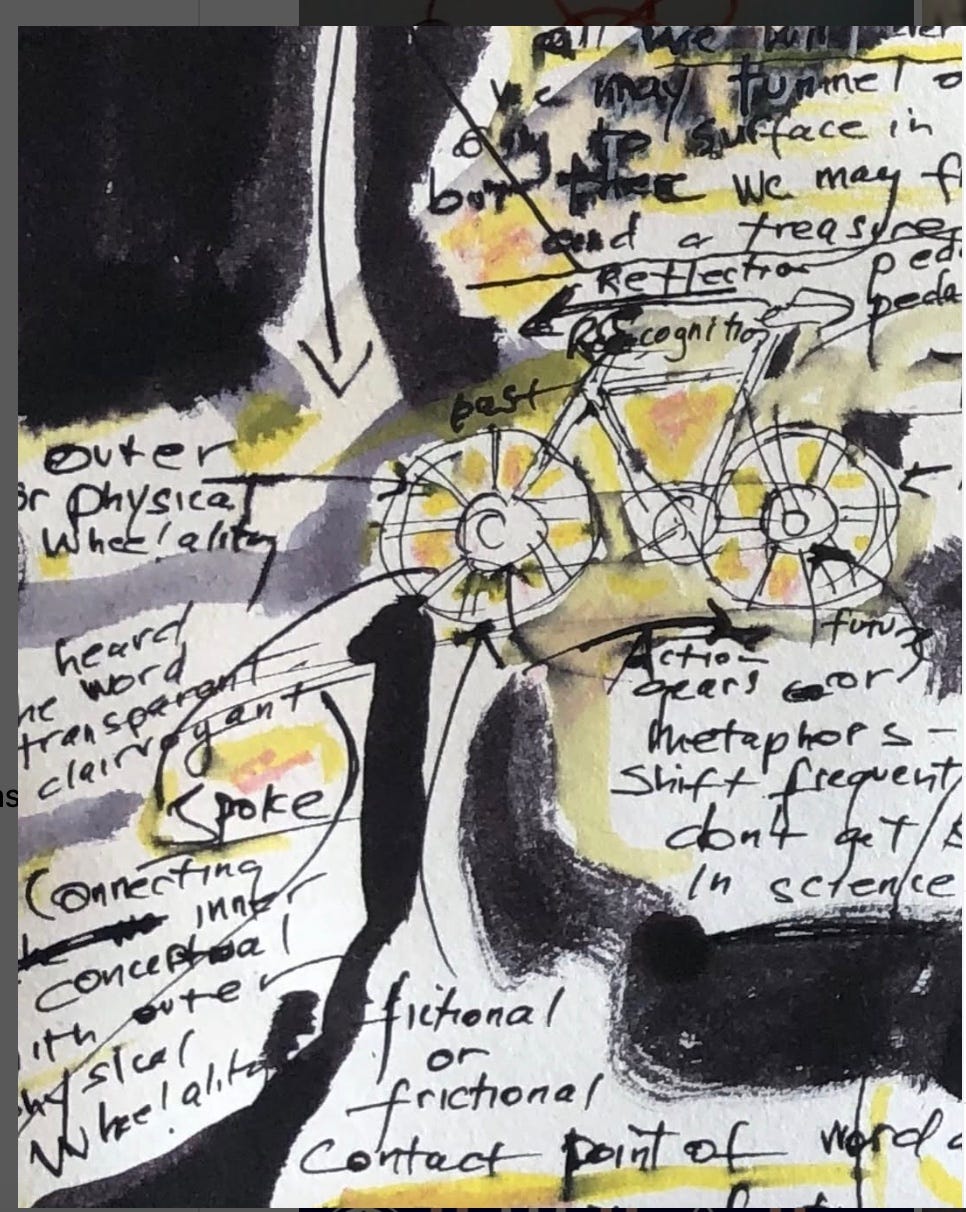 all we will
we may tunnel
only to surface in
but there we may
and a treasure
Reflection
ped
peda
Recognitio
past
outer
or physical
Wheelality
C
D
heard
he word
transparent
clairvoyant
Spoke
Connecting
inner
conceptual
ith outer
hysical
Wheelality
futu
Action
gears or
metaphors -
Shift frequent
don't get
In science
fictional
or
frictional
Contact point of word
ns